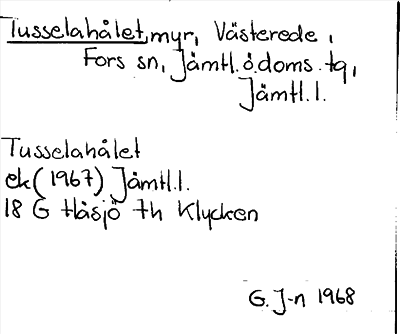 Tusselahålet, myr, Västerede,
Fors sn, Jämtl.ö.doms.tq,
Jämtl.l.
Tusselahålet
ek (1967) Jämtl.l.
18 G Håsjö 7h Klycken
G. J-n 1968